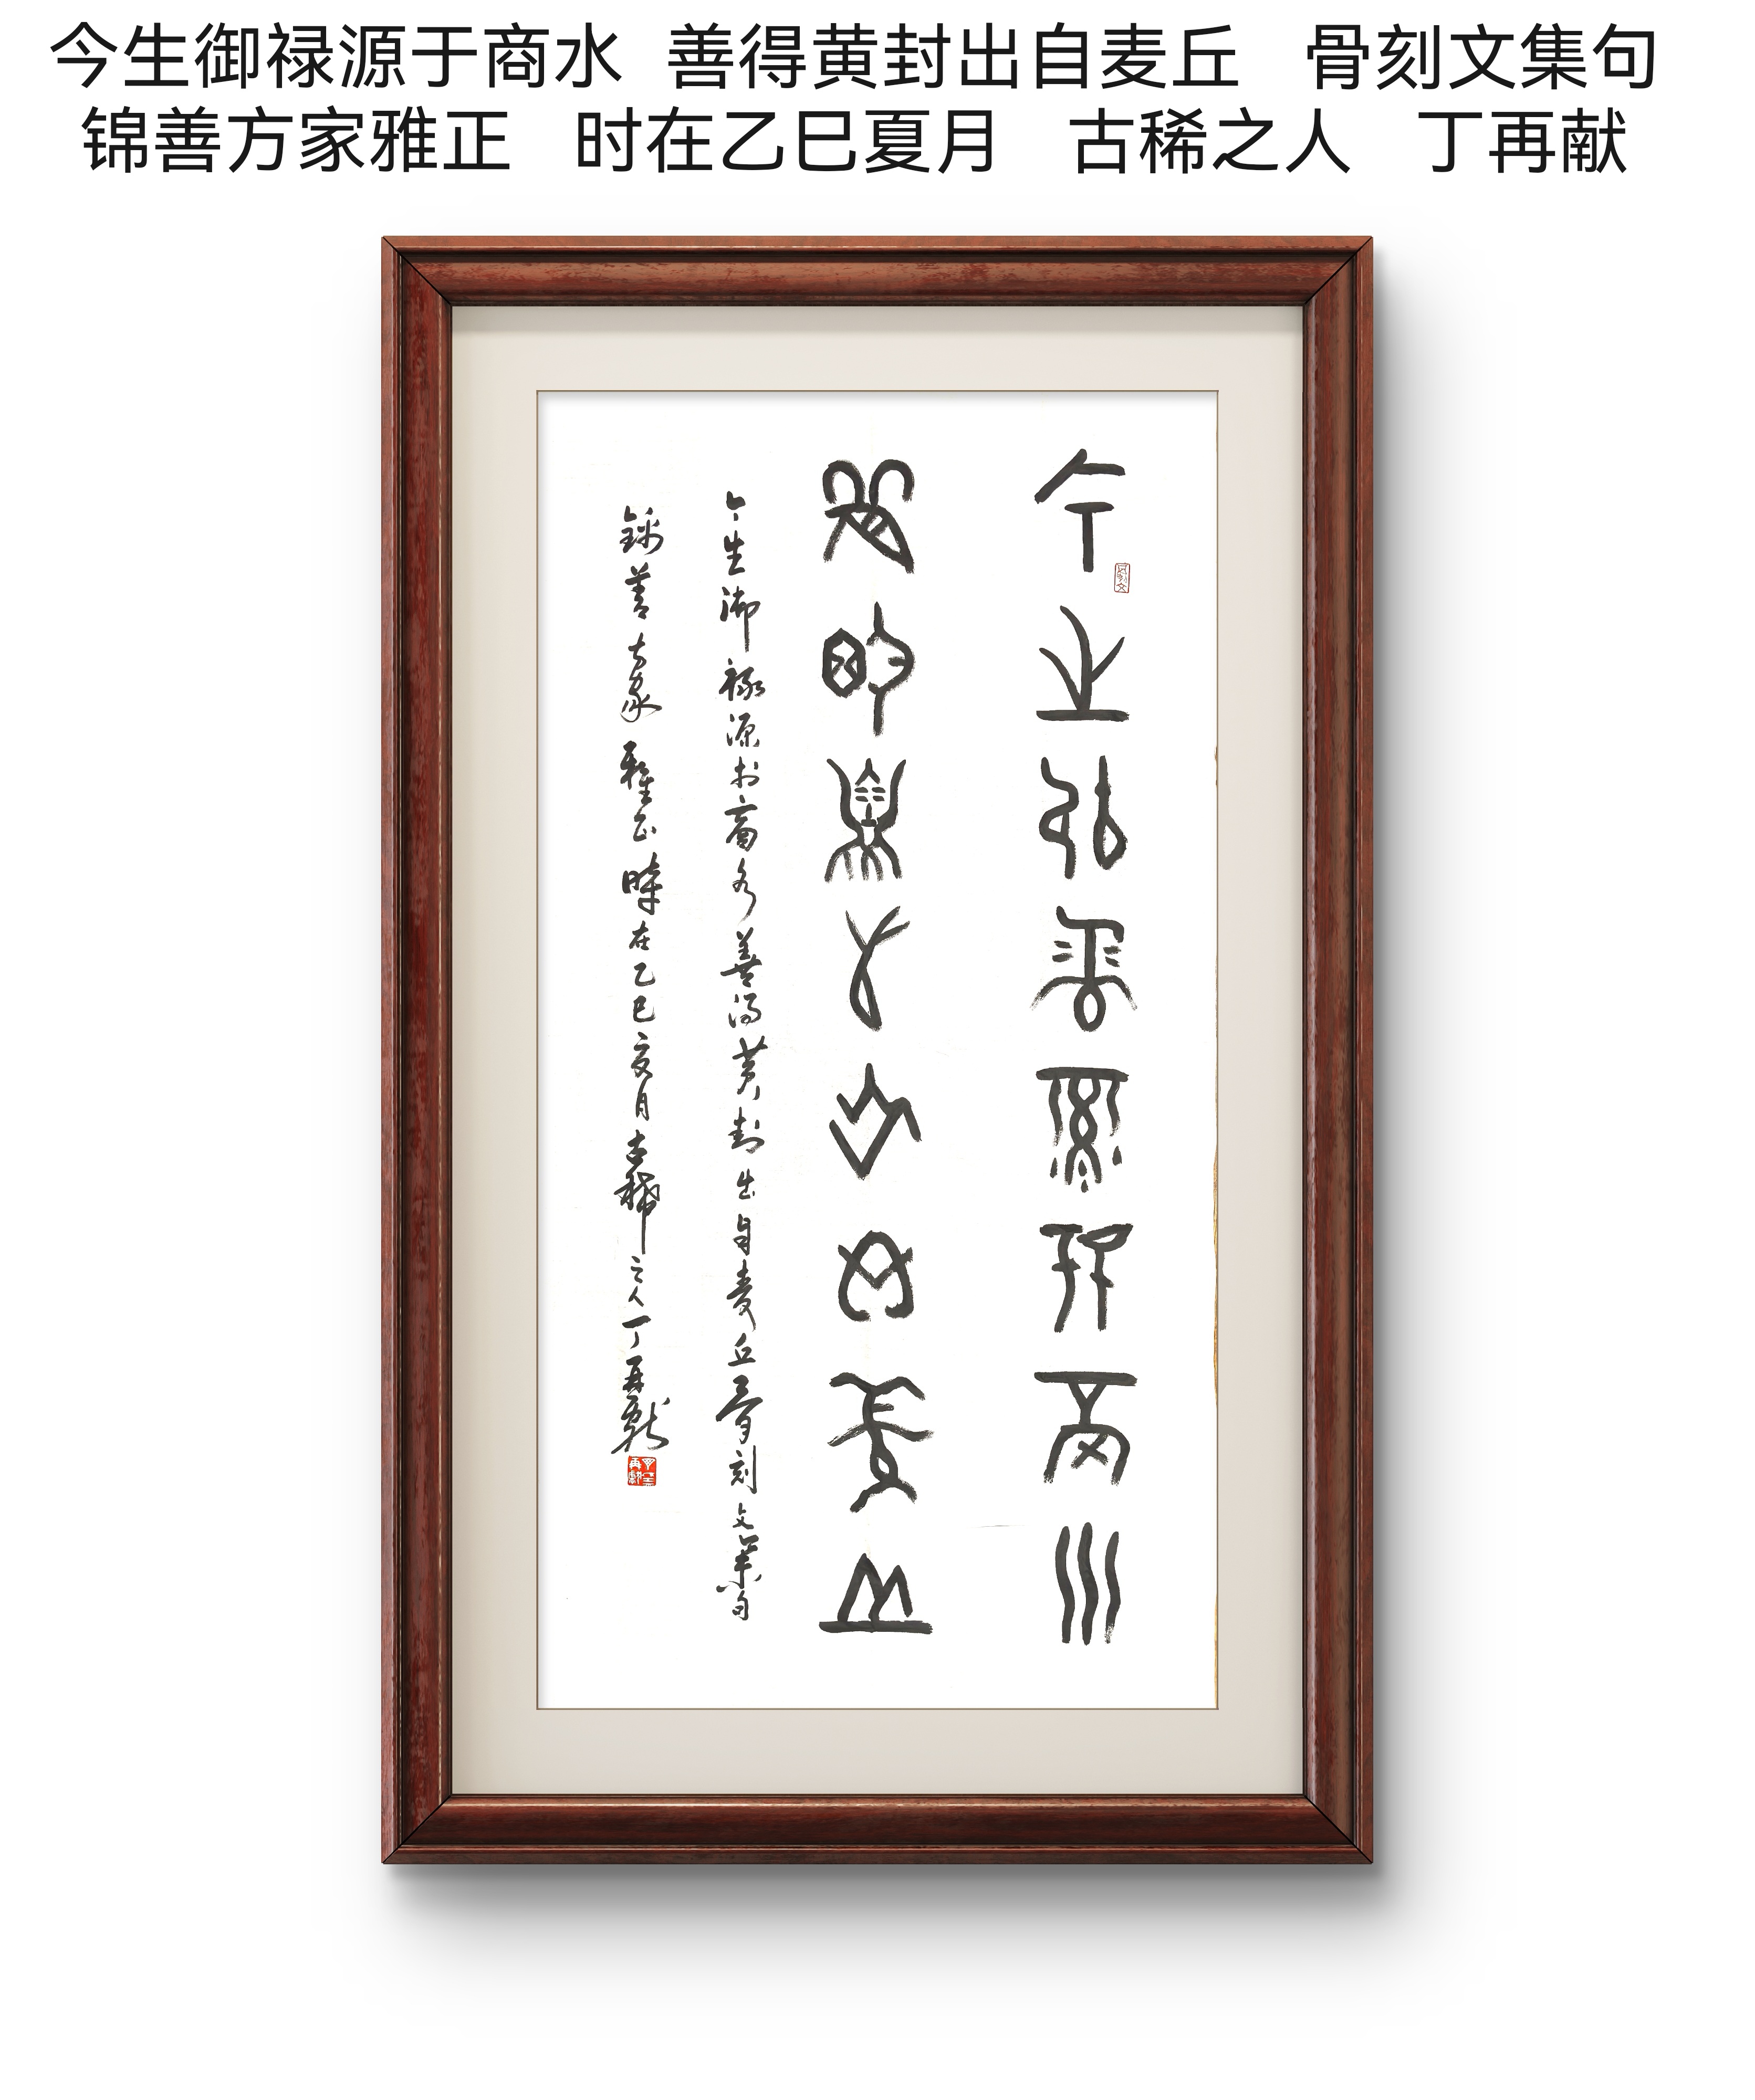 今生御禄源于商水 善得黄封出自麦丘 骨刻文集句
锦善方家雅正 时在乙巳夏月 古稀之人 丁再献
今生御禄源于商水
善得黄封出自麦丘
今生御禄源於商水善得黄封出自麦丘骨刻文集句
錦善方家雅正時在乙巳夏月古稀之人丁再献